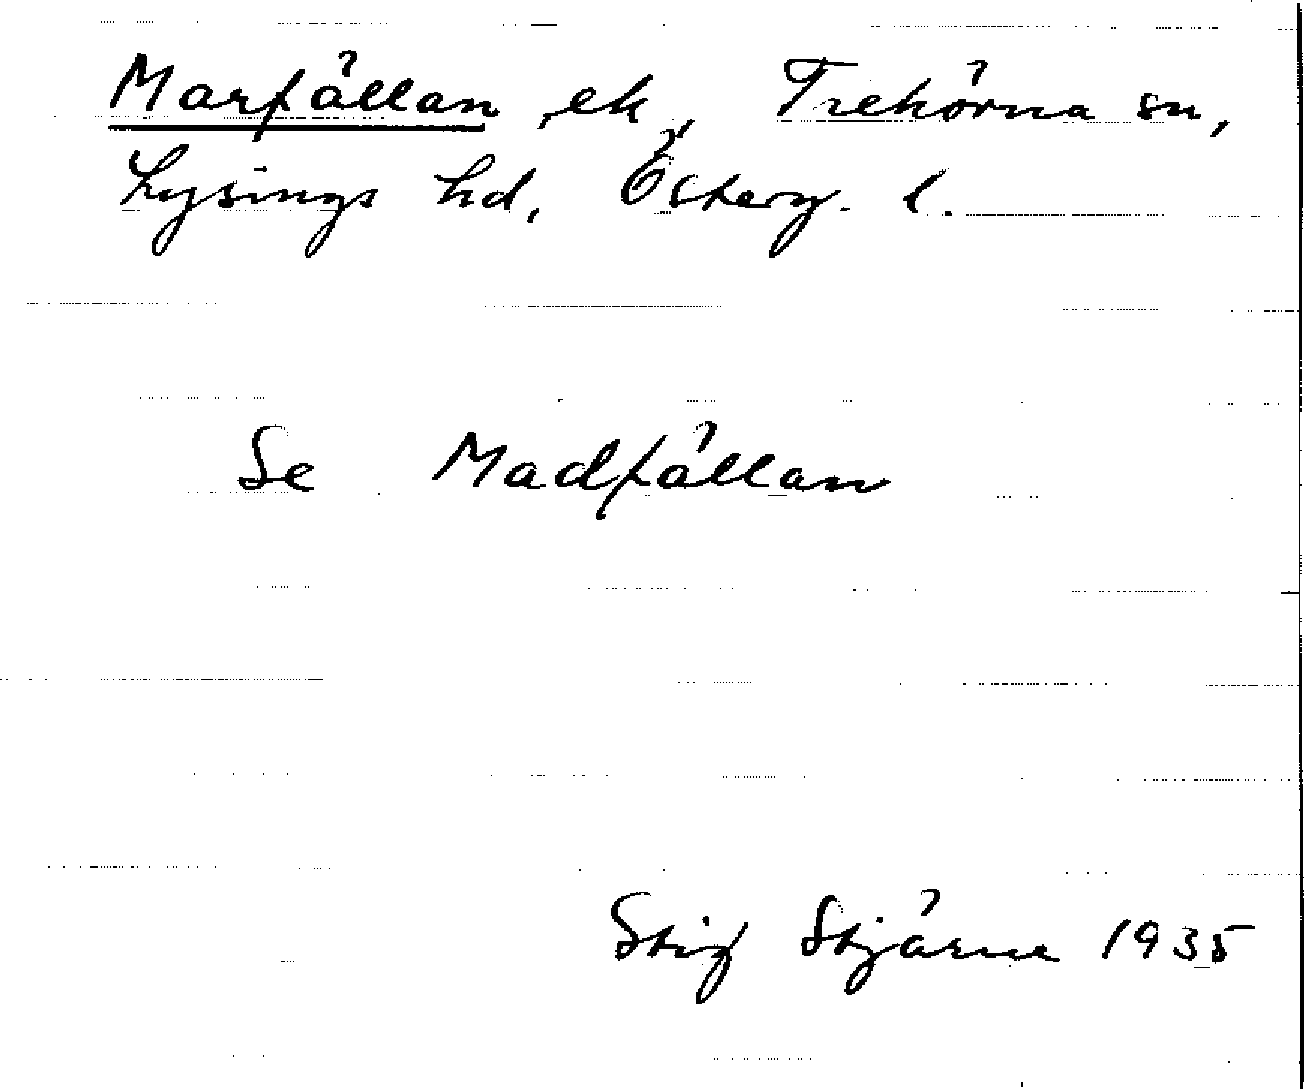 Marfällan, ek, Trehörna sn,
Lysings hd, Österg. l.
Se Madfällan
Stig Stjärne 1935